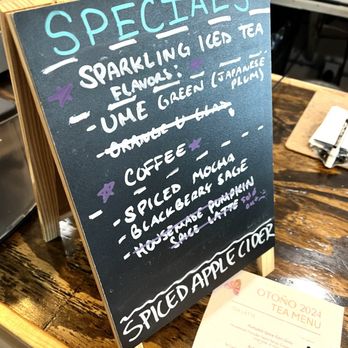 SPECIALS
SPARKLING ICED TEA
FLAVORS:
- UME GREEN (JAPANESE PLUM)
- ORANGE U GLAD
COFFEE
- SPICED MOCHA
- BLACKBERRY SAGE
- HOUSEMADE PUMPKIN
SPICE LATTE SOLD OUT
SPICED APPLE CIDER
OTOÑO 2024
TEA MENU